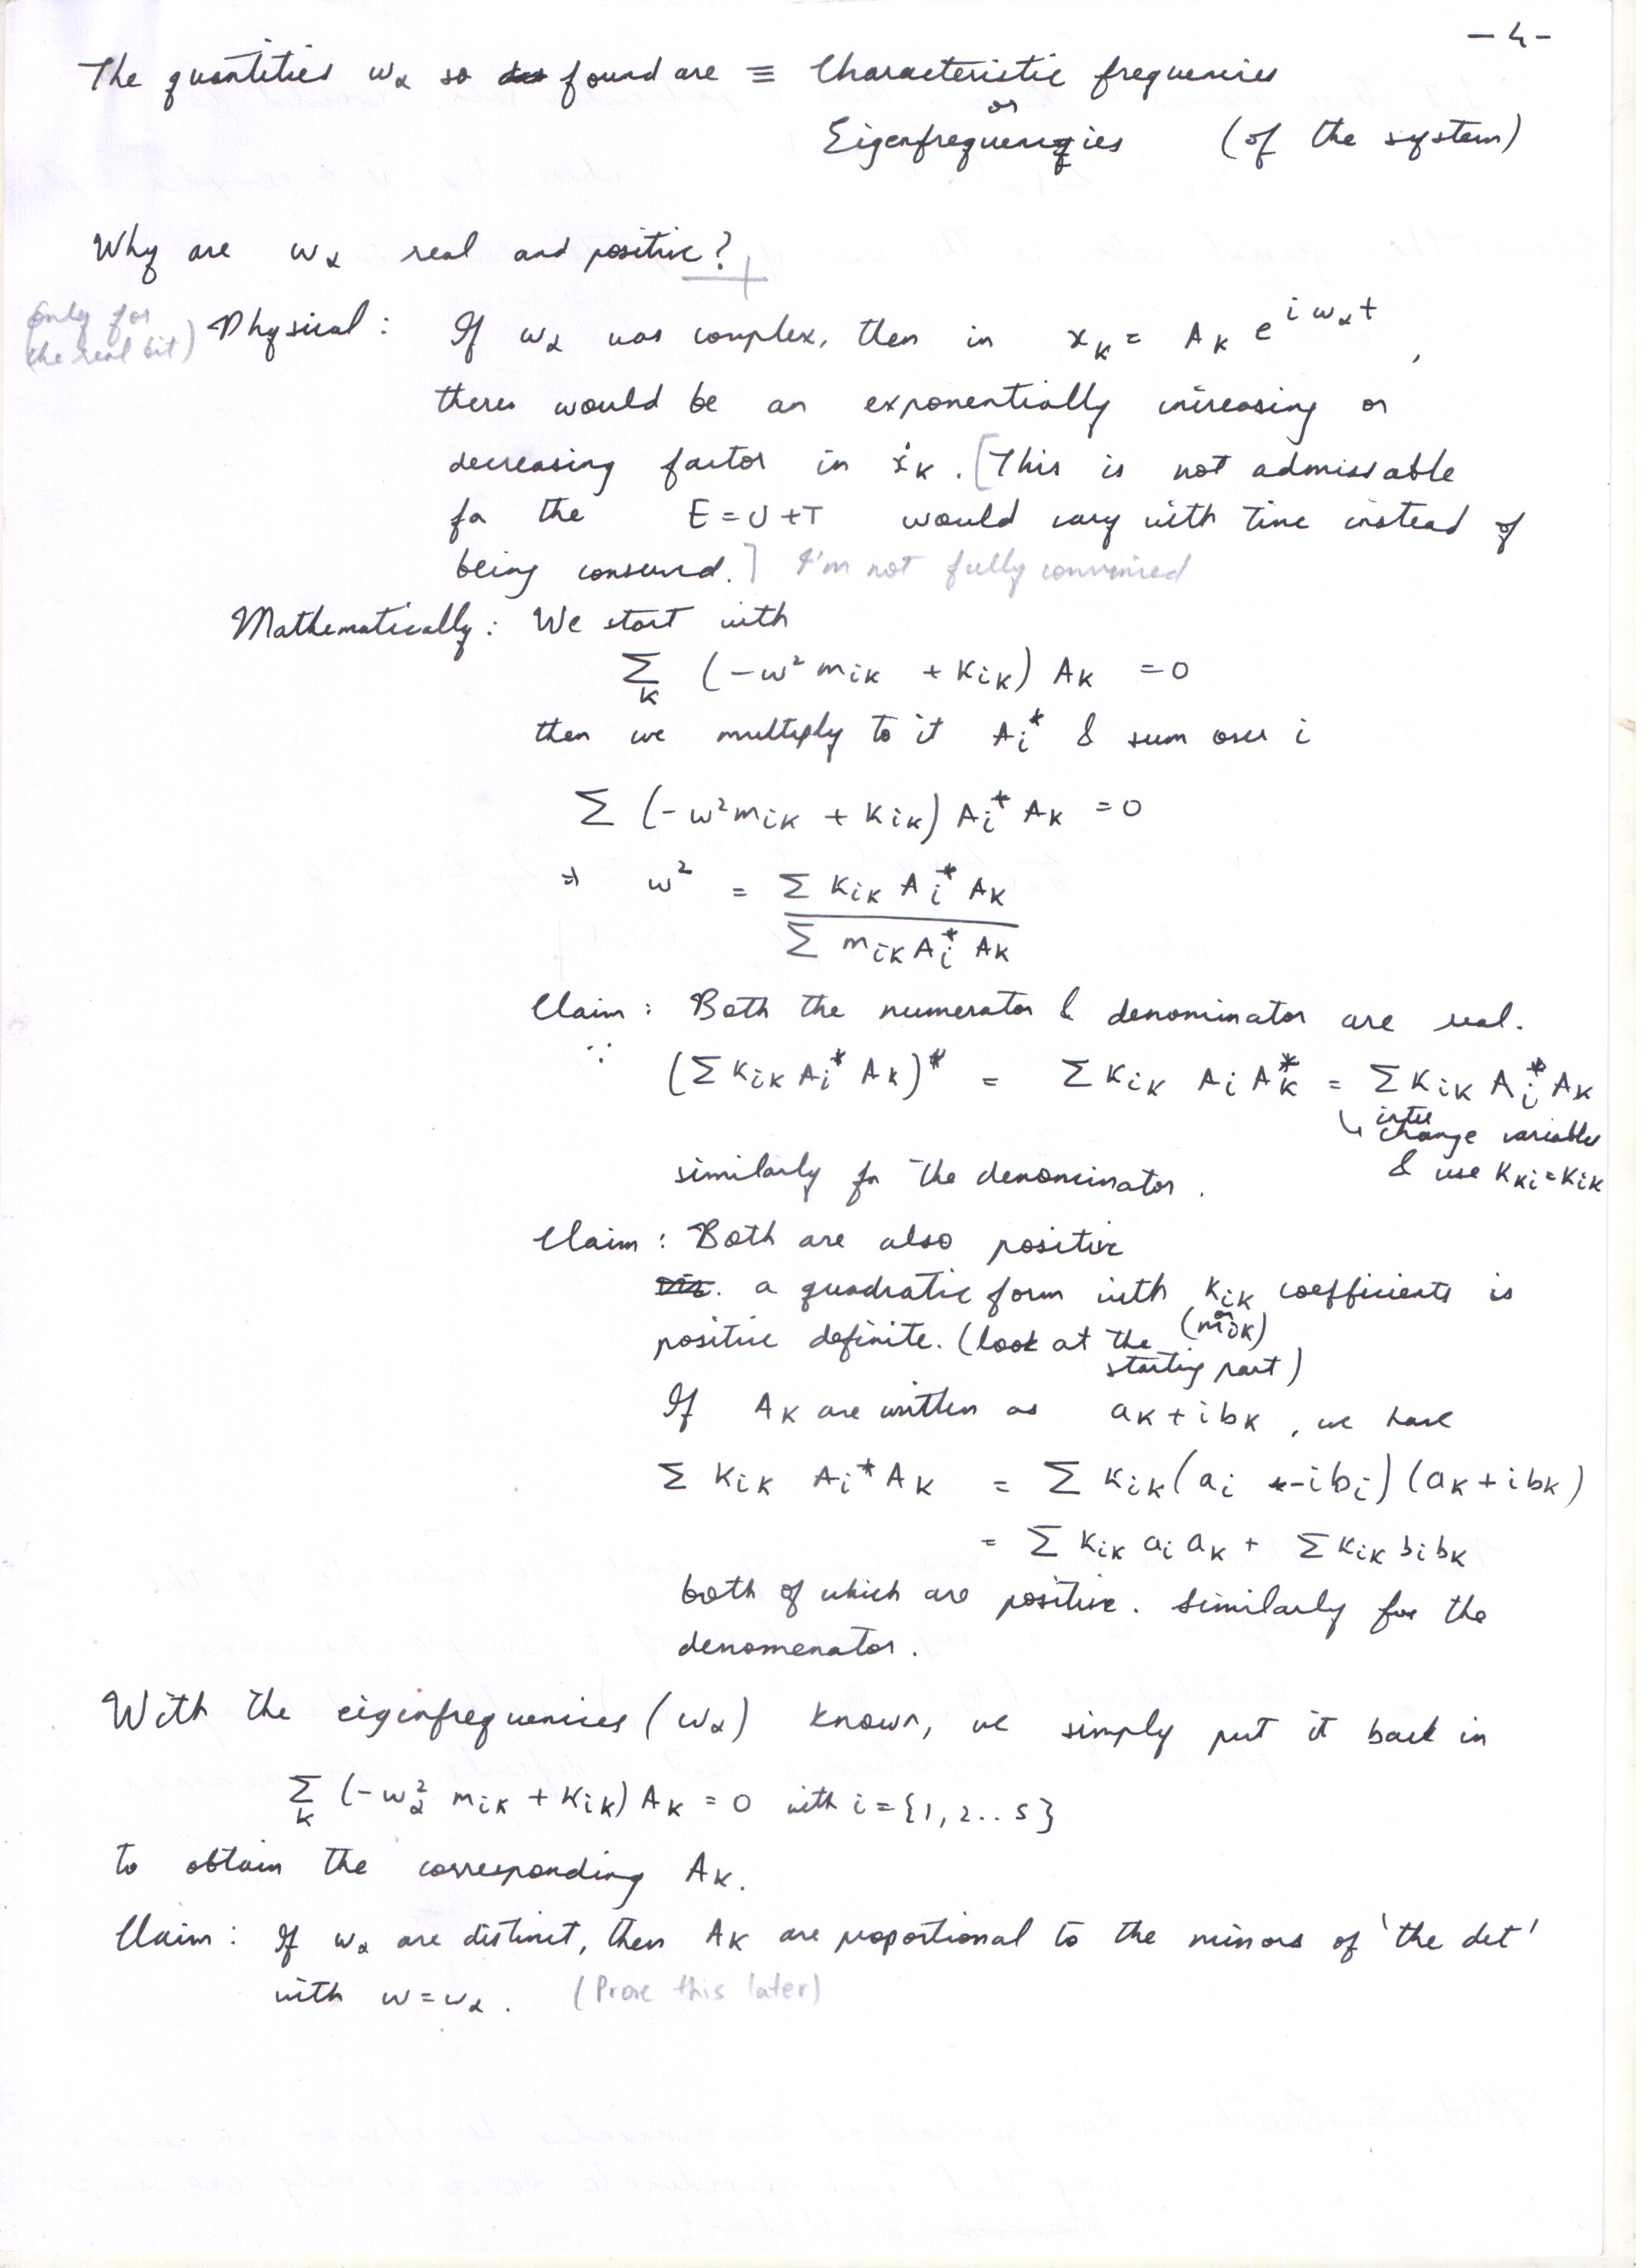 - 4 -
The quantities ωα so found are ≡ Characteristic frequencies
or
Eigenfrequencies (of the system)
Why are ωα real and positive?
(only for
the real bit)
Physical: If ωα was complex, then in x_k = A_k e^{iωαt},
there would be an exponentially increasing or
decreasing factor in ẋ_k. [This is not admissable
for the E = U + T would vary with time instead of
being conserved.] I'm not fully convinced
Mathematically: We start with
Σ_k (-ω² m_ik + k_ik) A_k = 0
then we multiply to it A_i* & sum over i
Σ (-ω² m_ik + k_ik) A_i* A_k = 0
⇒ ω² = Σ k_ik A_i* A_k
Σ m_ik A_i* A_k
Claim: Both the numerator & denominator are real.
∵ (Σ k_ik A_i* A_k)* = Σ k_ik A_i A_k* = Σ k_ik A_i* A_k
↳ inter
change variables
& use k_ki = k_ik
similarly for the denominator.
Claim: Both are also positive
a quadratic form with k_ik coefficients is
(or m_ik)
positive definite. (look at the
starting part)
If A_k are written as a_k + i b_k, we have
Σ k_ik A_i* A_k = Σ k_ik (a_i - i b_i) (a_k + i b_k)
= Σ k_ik a_i a_k + Σ k_ik b_i b_k
both of which are positive. Similarly for the
denomenator.
With the eigenfrequencies (ωα) known, we simply put it back in
Σ_k (-ωα² m_ik + k_ik) A_k = 0 with i = {1, 2.. s}
to obtain the corresponding A_k.
Claim: If ωα are distinct, then A_k are proportional to the minors of 'the det'
with ω = ωα. (Prove this later)